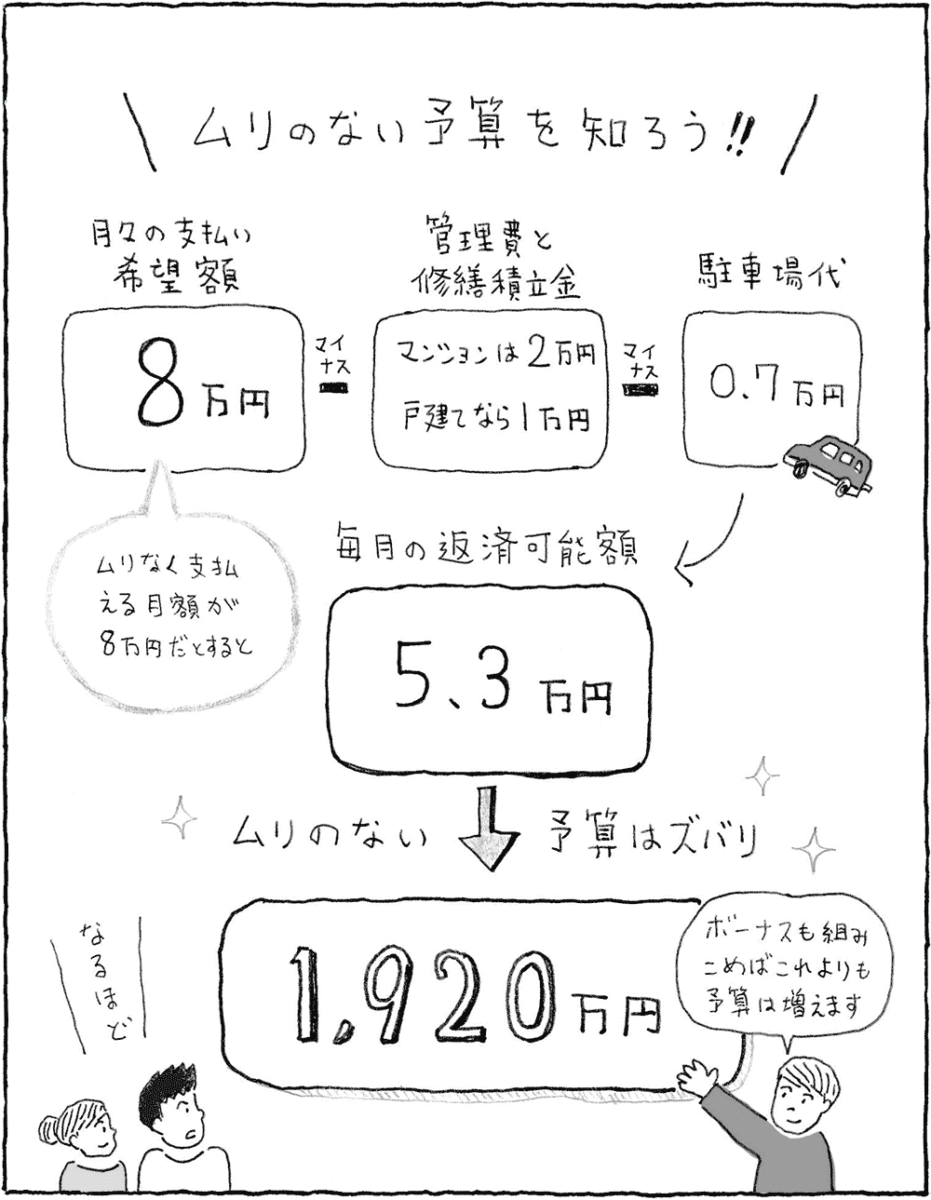 ムリのない予算を知ろう!!
月々の支払い
希望額
8万円
マイ
ナス
管理費と
修繕積立金
マンションは2万円
戸建てなら1万円
マイ
ナス
駐車場代
0.7万円
ムリなく支払
える月額が
8万円だとすると
毎月の返済可能額
5、3万円
ムリのない 予算はズバリ
1,920万円
なるほど
ボーナスも組み
こめばこれよりも
予算は増えます